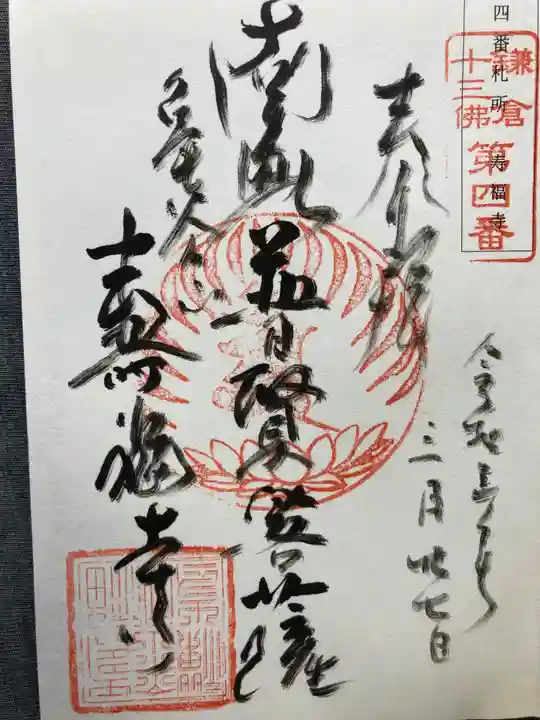 四番札所 寿福寺
鎌倉
十三佛
第四番
奉拝
令和五年
三月廿七日
南無普賢菩薩
壽福寺